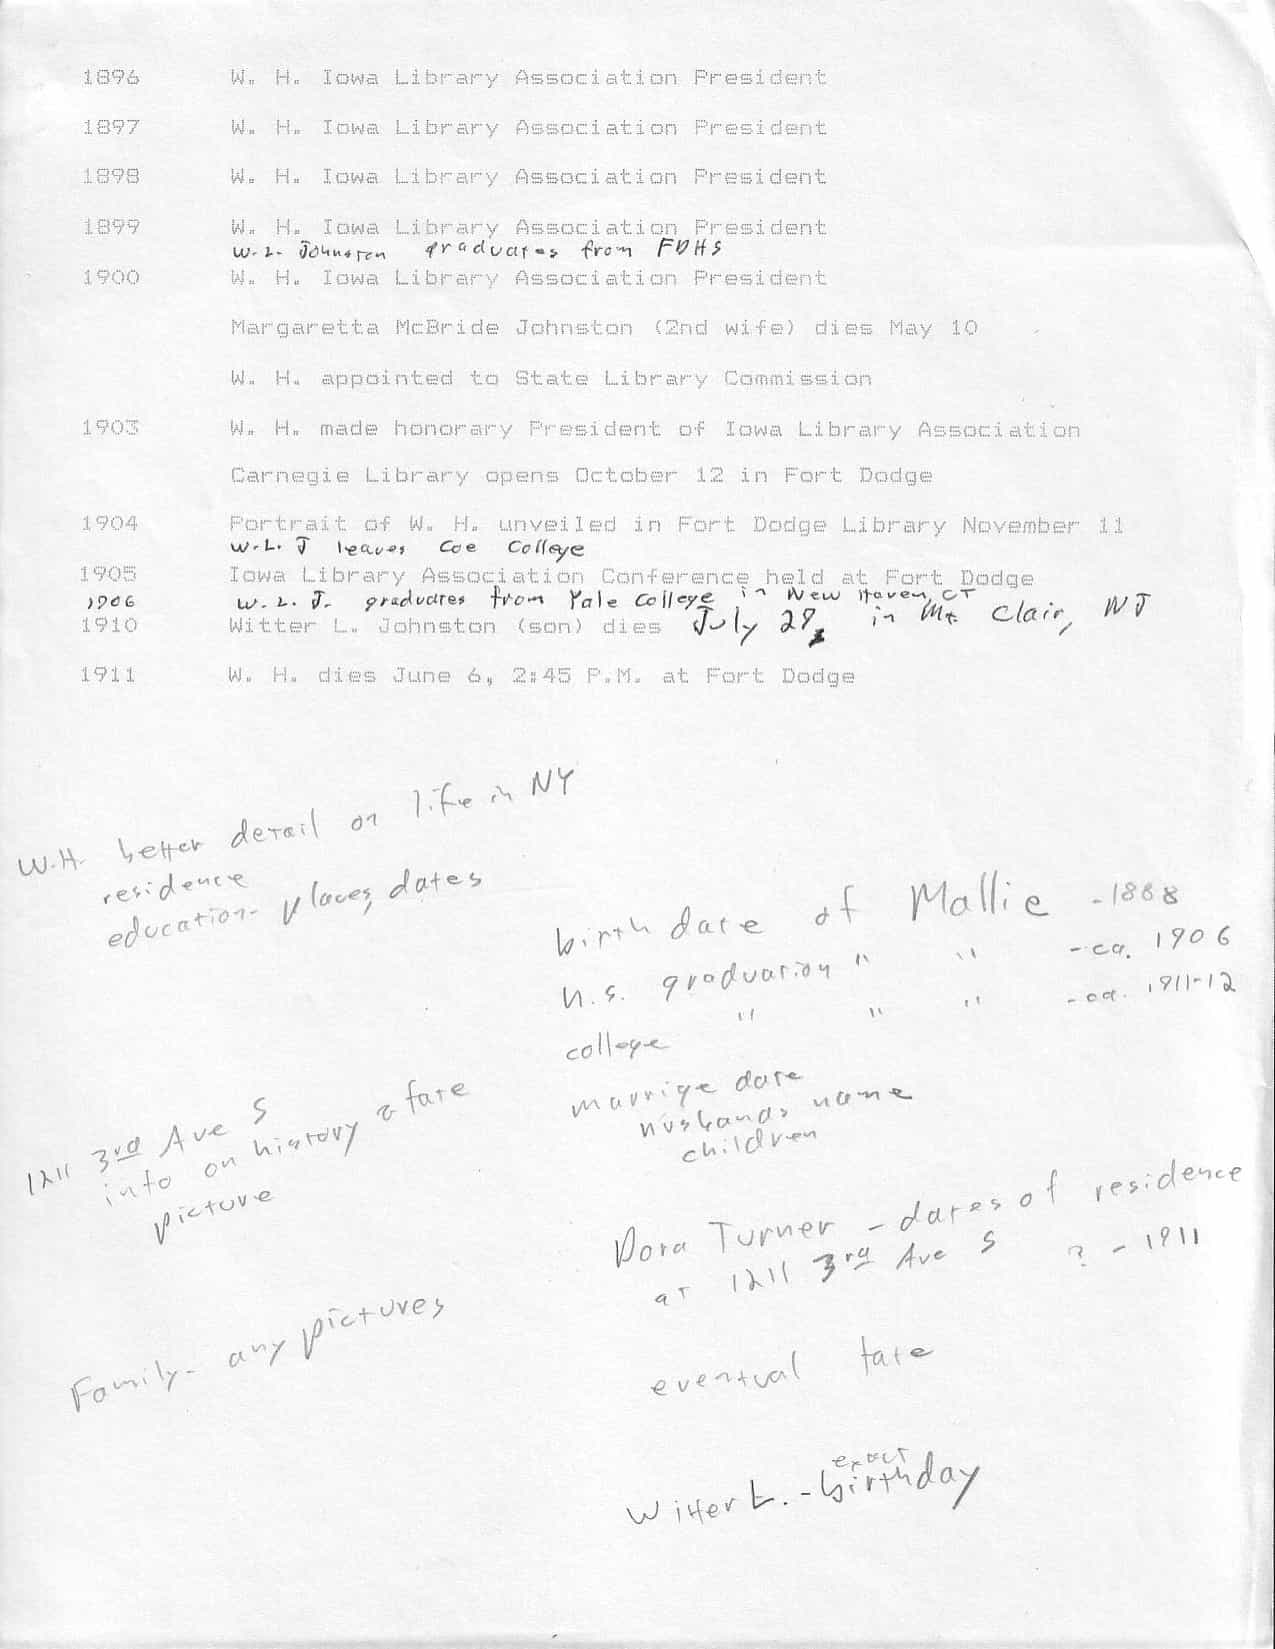 1896 W. H. Iowa Library Association President
1897 W. H. Iowa Library Association President
1898 W. H. Iowa Library Association President
1899 W. H. Iowa Library Association President
W. L. Johnston graduates from FDHS
1900 W. H. Iowa Library Association President
Margaretta McBride Johnston (2nd wife) dies May 10
W. H. appointed to State Library Commission
1903 W. H. made honorary President of Iowa Library Association
Carnegie Library opens October 12 in Fort Dodge
1904 Portrait of W. H. unveiled in Fort Dodge Library November 11
W. L. J leaves Coe College
1905 Iowa Library Association Conference held at Fort Dodge
1906 W. L. J. graduates from Yale College in New Haven, CT
1910 Witter L. Johnston (son) dies July 28, in Mt Clair, NJ
1911 W. H. dies June 6, 2:45 P.M. at Fort Dodge
W.H. better detail on life in NY
residence
education- places, dates
birth date of Mallie - 1888
H.S. graduation " " - ca. 1906
college " " " - ca. 1911-12
marrige date
husbands name
children
1211 3rd Ave S
info on history & fate
picture
Dora Turner - dates of residence
at 1211 3rd Ave S ? - 1911
Family- any pictures
eventual fate
Witter L. - exact birthday